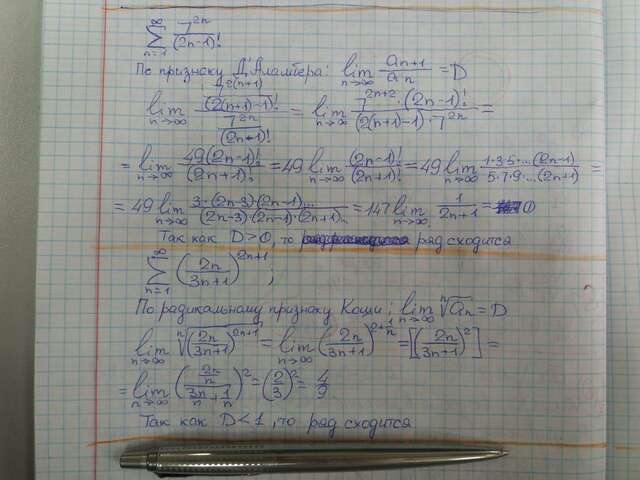 ∑_{n=1}^{∞} 7^{2n}/(2n-1)!
По признаку Д'Аламбера: lim_{n→∞} a_{n+1}/a_n = D
lim_{n→∞} (7^{2(n+1)}/(2(n+1)-1)!)/(7^{2n}/(2n-1)!) = lim_{n→∞} 7^{2n+2}·(2n-1)!/((2(n+1)-1)·7^{2n}) =
= lim_{n→∞} 49(2n-1)!/(2n+1)! = 49 lim_{n→∞} (2n-1)!/(2n+1)! = 49 lim_{n→∞} 1·3·5·...(2n-1)/(5·7·9...(2n+1)) =
= 49 lim_{n→∞} 3·(2n-3)·(2n-1).../((2n-3)·(2n-1)·(2n+1)...) = 147 lim_{n→∞} 1/(2n+1) = 0
Так как D>0, то ряд сходится
∑_{n=1}^{∞} (2n/(3n+1))^{2n+1};
По радикальному признаку Коши; lim_{n→∞} ⁿ√a_n = D
lim_{n→∞} ⁿ√(2n/(3n+1))^{2n+1} = lim_{n→∞} (2n/(3n+1))^{2+1/n} = [(2n/(3n+1))^2] =
= lim_{n→∞} ((2n/n)/(3n/n+1/n))^2 = (2/3)^2 = 4/9
Так как D<1, то ряд сходится